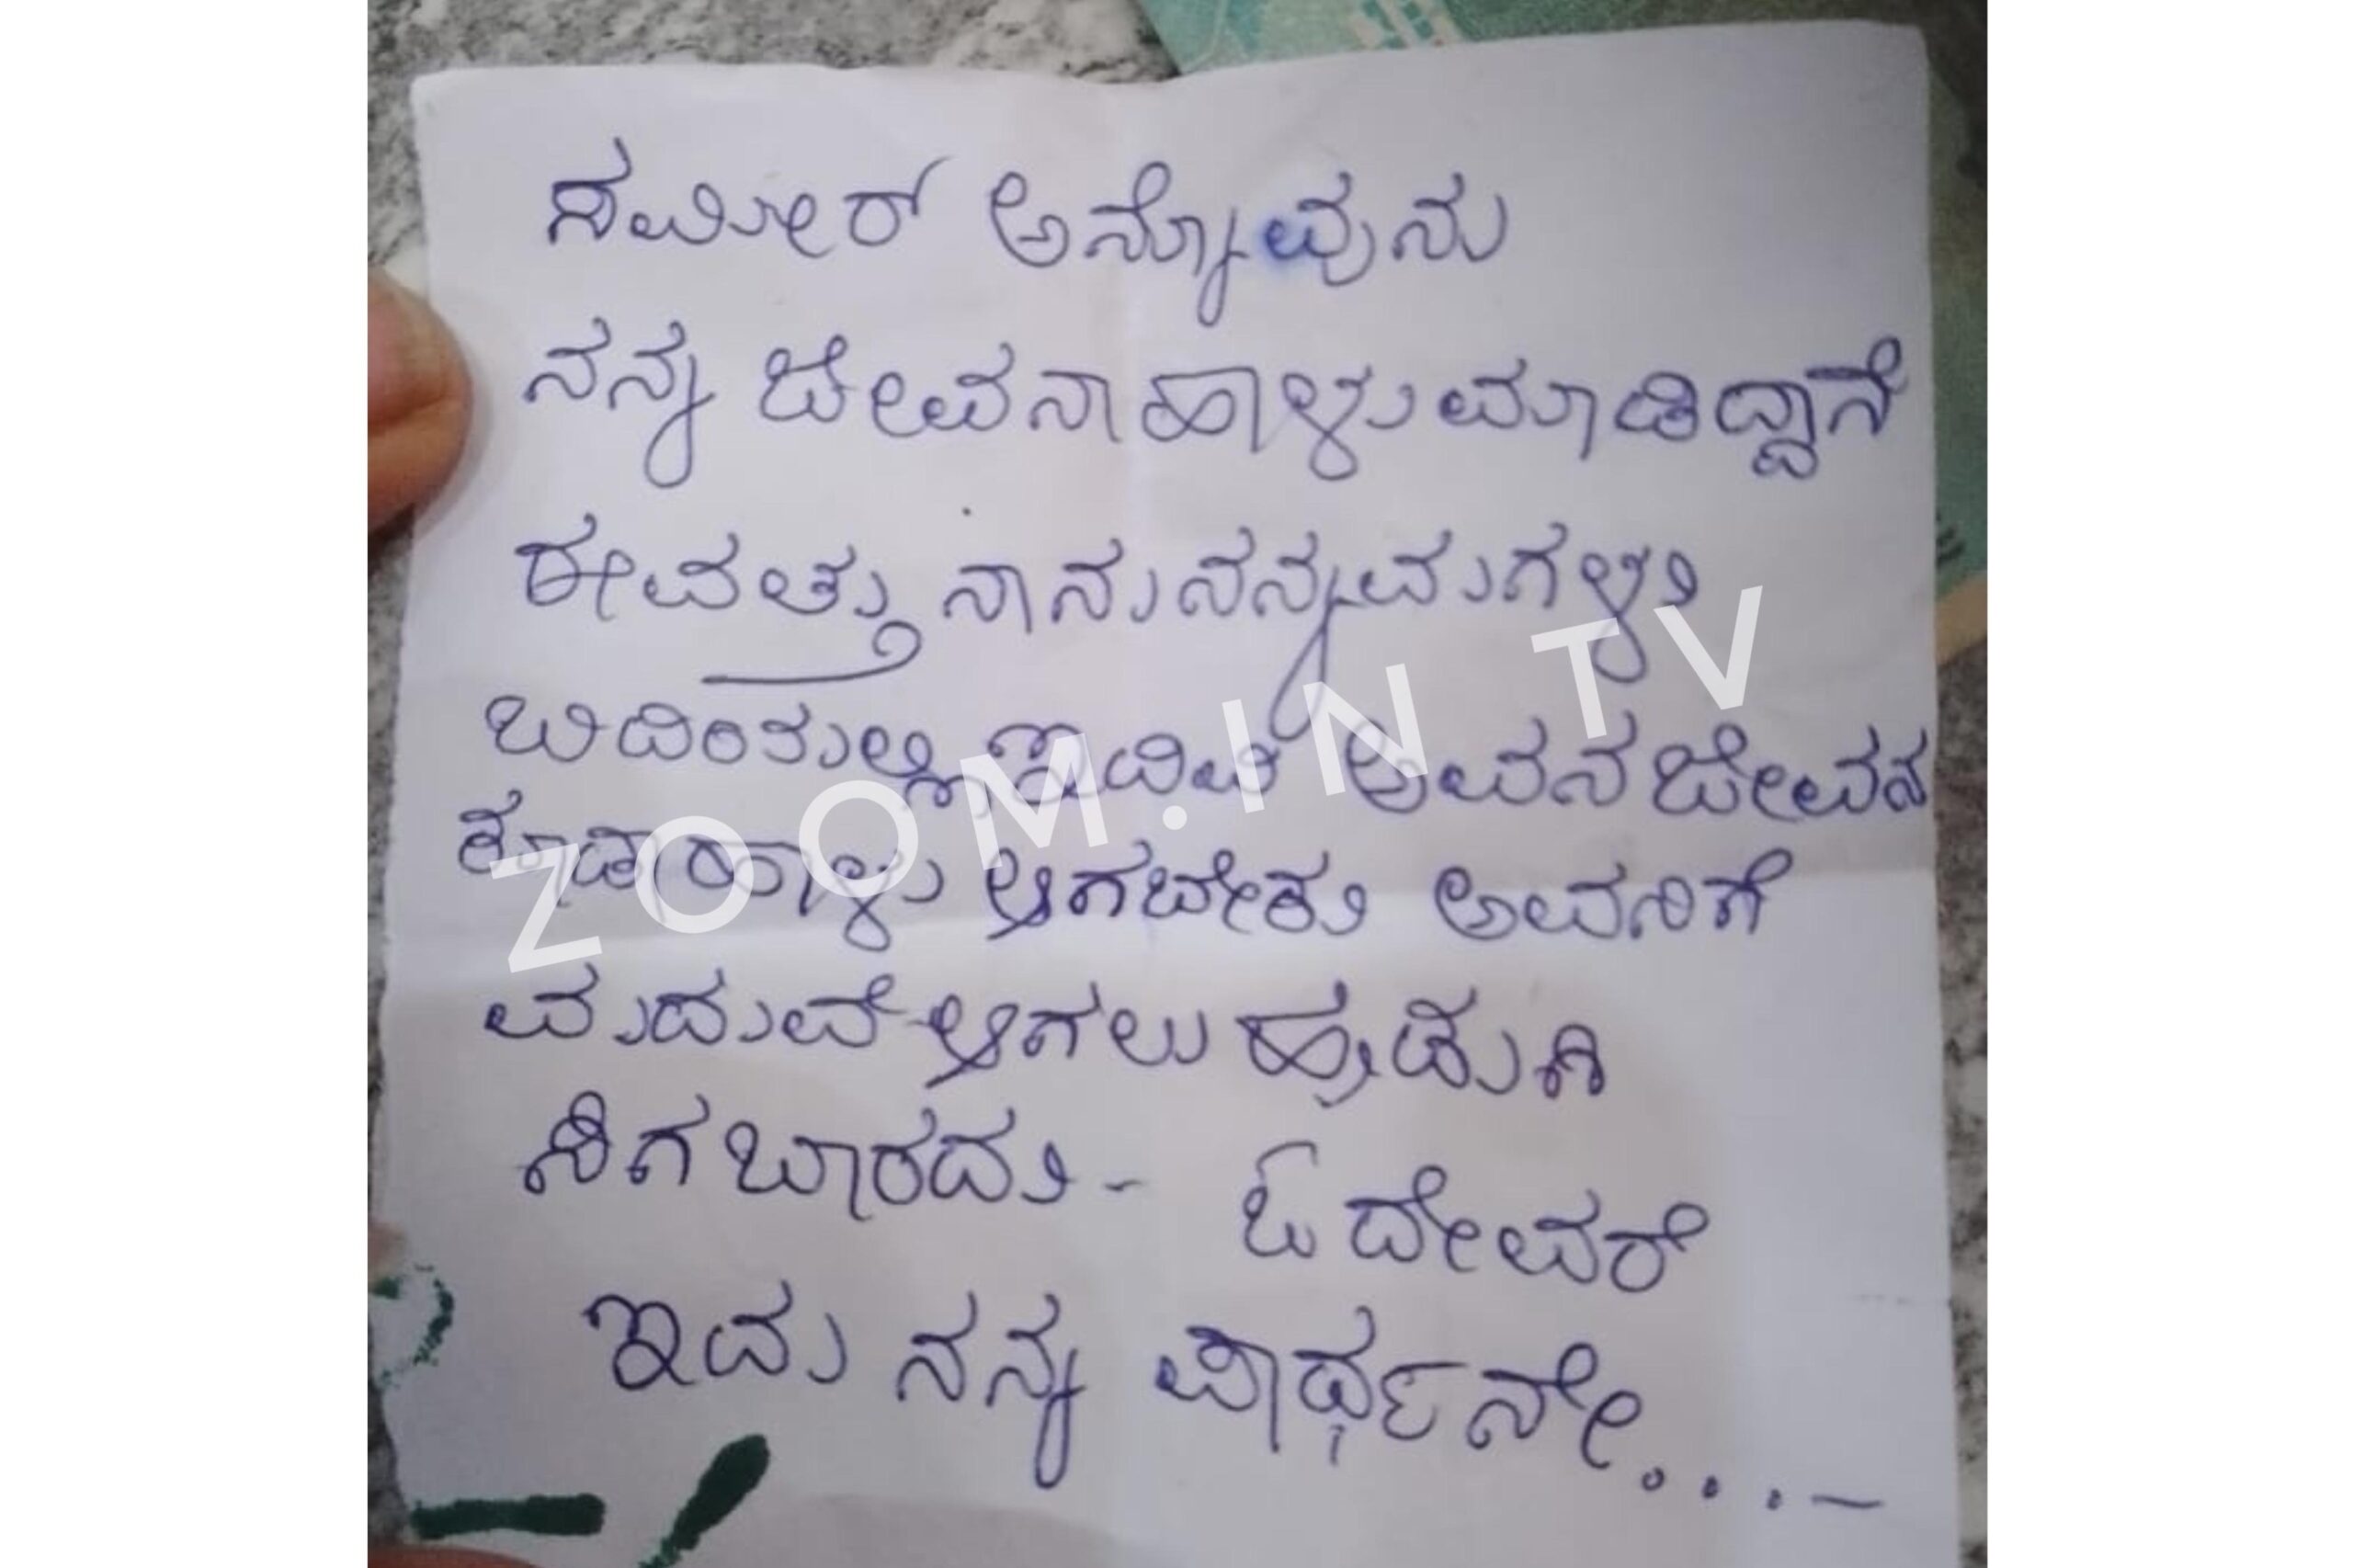 ಸಮೀರ್ ಅನ್ನೋವುನು
ನನ್ನ ಜೀವನಾ ಹಾಳು ಮಾಡಿದ್ದಾನೆ
ಈವತ್ತು ನಾನು ನನ್ನ ಮಗಳು
ಬಿದಿಂತುಲ್ಲಿ ಇದಿವಿ ಅವನ ಜೀವನ
ಕೂಡಾ ಹಾಳು ಆಗಬೇಕು ಅವನಿಗೆ
ಮದುವೆ ಆಗಲು ಹುಡುಗಿ
ಸಿಗಬಾರದು - ಓ ದೇವರೆ
ಇದು ನನ್ನ ಪಾರ್ಥನೇ...-
ZOOM.IN TV